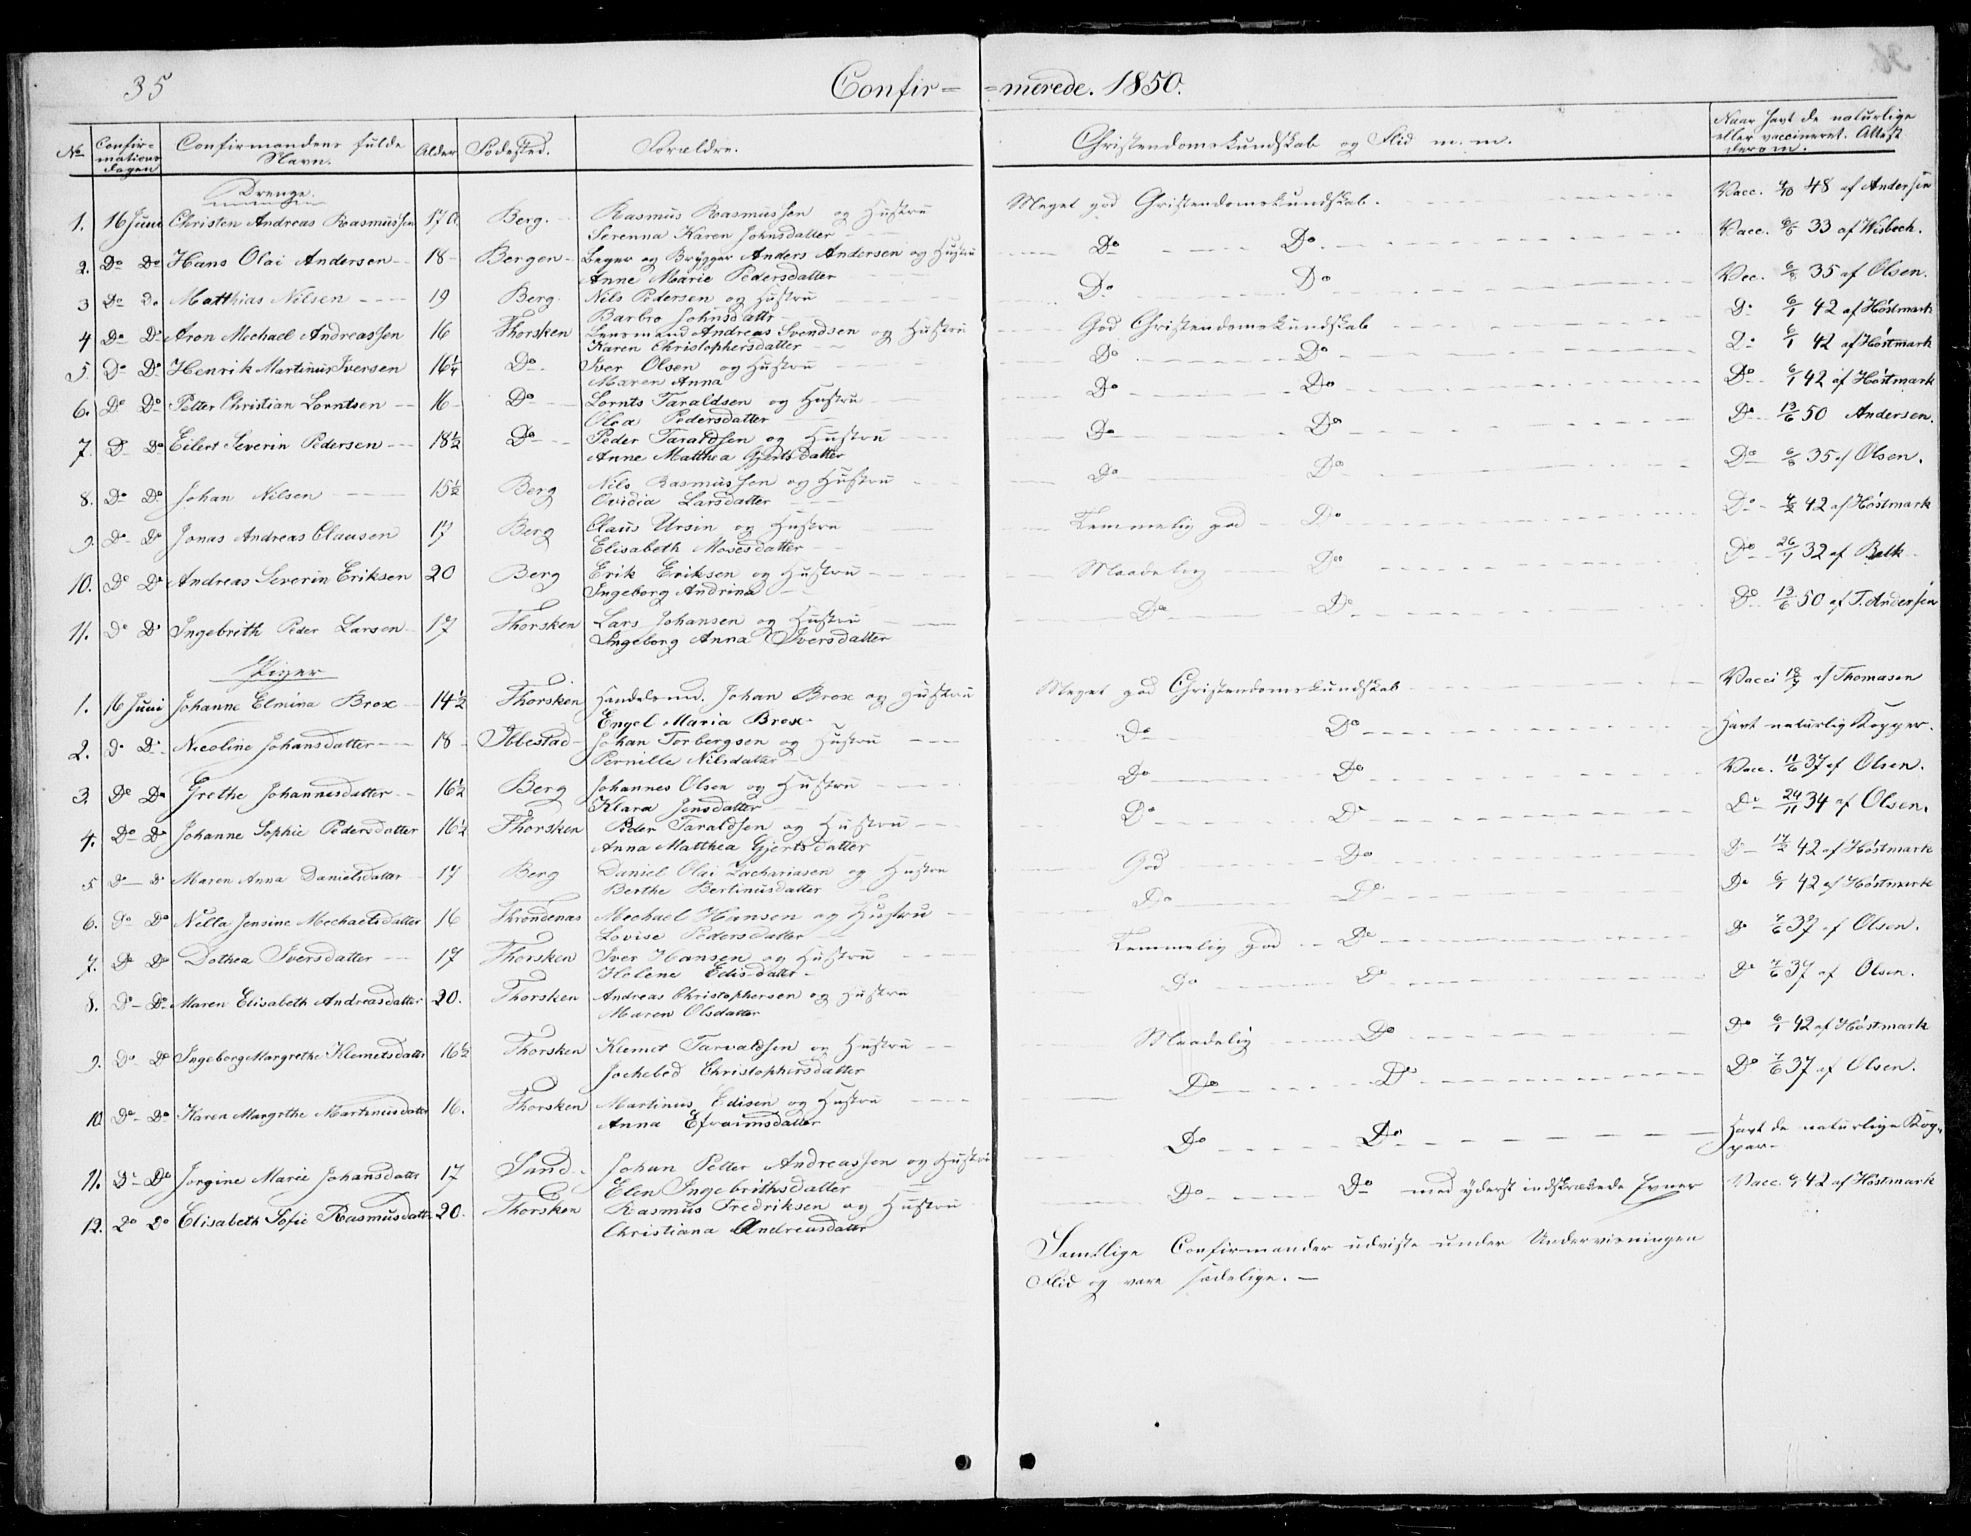 35 Confir= =merede. 1850.
No Confir=mations dagen Confirmandens fulde Navn. Alder Fødested. Forældre. Christendomskundskab og Flid m. m. Naar havt de naturlige eller vaccineret. Attest derom.
Drenge.
1. 16 Juni Christen Andreas Rasmussen 17 Berg. Rasmus Rasmussen og Hustru Meget god Christendomskundskab. Vacc. 48 af Andersen
Serenna Karen Johnsdatter
2. Do Do Hans Olai Andersen 18 Bergen Bager og Brygger Anders Andersen og Hustru Do Do Vacc. 33 af Wisbech.
Anne Marie Pedersdatter
3 Do Do Matthias Nilsen 19 Berg. Nils Pedersen og Hustru Do Do Vac. 6/8 35 af Olsen.
Barbro Johnsdattr
4 Do Do Aron Mechael Andreassen 16 Thorsken Lensmand Andreas Svendsen og Hustru God Christendomskundskab Do 6/1 42 af Høstmark
Karen Christophersdatter
5. Do Do Henrik Martinus Iversen 16¼ Do Iver Olsen og Hustru Do Do Do 6/1 42 af Høstmark
Maren Anna
6. Do Do Petter Christian Lorntsen 16 Do Lornts Taraldsen og Hustru Do Do Do 6/1 42 af Høstmark
Olea Pedersdatter
7. Do Do Eilert Severin Pedersen 18½ Do Peder Taraldsen og Hustru Do Do Do 13/6 50 Andersen.
Anne Matthea Gjertsdatter
8. Do Do Johan Nilsen 15½ Berg Nils Rasmussen og Hustru Do Do Do 6/8 35 af Olsen.
Ovidia Larsdatter
9. Do Do Jonas Andreas Clausen 17 Berg Claus Ursin og Hustru Temmelig god Do Do 42 af Høstmark
Elisabeth Mosesdatter
10. Do Do Andreas Severin Eriksen 20 Berg Erik Eriksen og Hustru Maadelig Do Do 26/11 32 af Balk
Ingeborg Andrina
11. Do Do Ingebrith Peder Larsen 17 Thorsken Lars Johansen og Hustru Do Do Do 13/6 50 af T. Andersen
Ingeborg Anna Iversdatter
Piger
1. 16 Juni Johanne Elmina Brox 14½ Thorsken Handelsmd. Johan Brox og Hustru Meget god Christendomskundskab Vacci af Thomasen
Engel Maria Brox
2. Do Do Nicoline Johansdatter 18 Ibbestad Johan Torbergsen og Hustru Do Do Havt naturlig Kopper.
Pernille Nilsdatter
3. Do Do Grethe Johannesdatter 16½ Berg Johannes Olsen og Hustru Do Do Vacc. 11/6 37 af Olsen.
Klara Jensdatter
4. Do Do Johanne Sophie Pedersdatter 16½ Thorsken Peder Taraldsen og Hustru Do Do Do 24/11 34 af Olsen.
Anna Matthea Gjertsdatter
5 Do Do Maren Anna Danielsdatter 17 Berg Daniel Olai Zachariasen og Hustru God Do Do 17/2 42 af Høstmark
Berthe Bertinusdatter
6. Do Do Nella Jensine Mechaelsdatter 16 Throndenæs Mechael Hansen og Hustru Do Do Do 6/1 42 af Høstmark
Lovise Pedersdatter
7. Do Do Dothea Iversdatter 17 Thorsken Iver Hansen og Hustru Temmelig god Do Do 7/6 37 af Olsen.
Helene Edisdattr
8. Do Do Maren Elisabeth Andreasdatter 20. Thorsken Andreas Christophersen og Hustru Do Do Do 7/6 37 af Olsen.
Maren Olsdatter
9. Do Do Ingeborg Margrethe Klemetsdattr 16½ Thorsken Klemet Tarvaldsen og Hustru Maadelig Do Do 6/1 42 af Høstmark
Jochebed Christophersdatter
10 Do Do Karen Margrthe Martinusdatter 16. Thorsken Martinus Edisen og Hustru Do Do Do 7/6 37 af Olsen.
Anna Efraimsdatter
11. Do Do Jorgine Marie Johansdattr 17 Sand. Johan Petter Andreassen og Hustru Do Do Havt de naturlige Kop-
per.
Elen Ingebrithsdatter
12. Do Do Elisabeth Sofie Rasmusdattr 20. Thorsken Rasmus Fredriksen og Hustru Do Do med yderst indskrænkede Evner Vacc. 42 af Høstmark
Christiana Andreasdattr
Samtlige Confirmander udviste under Undervisningen
Flid og vare sædelige.